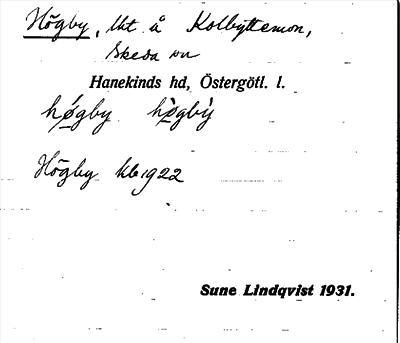 Högby, lht å Kolbyttemon,
Skeda sn
Hanekinds hd, Östergötl. l.
hǿgby hø̀gby̍
Högby kb 1922
Sune Lindqvist 1931.